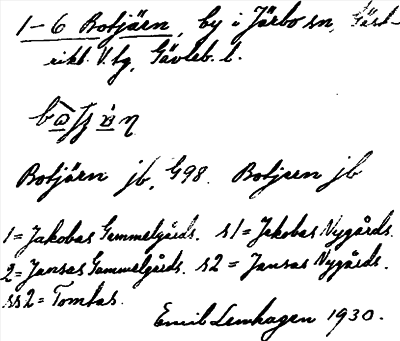 1–6 Botjärn, by i Järbo sn, Gäst-
rikl. V. tg, Gävleb. l.
Botjärn jb, G98. Botjern jb
1 = Jakobas Gammelgårds. s1 = Jakobas Nygårds.
2 = Jansas Gammelgårds. s2 = Jansas Nygårds.
ss2 = Tomtas.
Emil Lenhagen 1930.